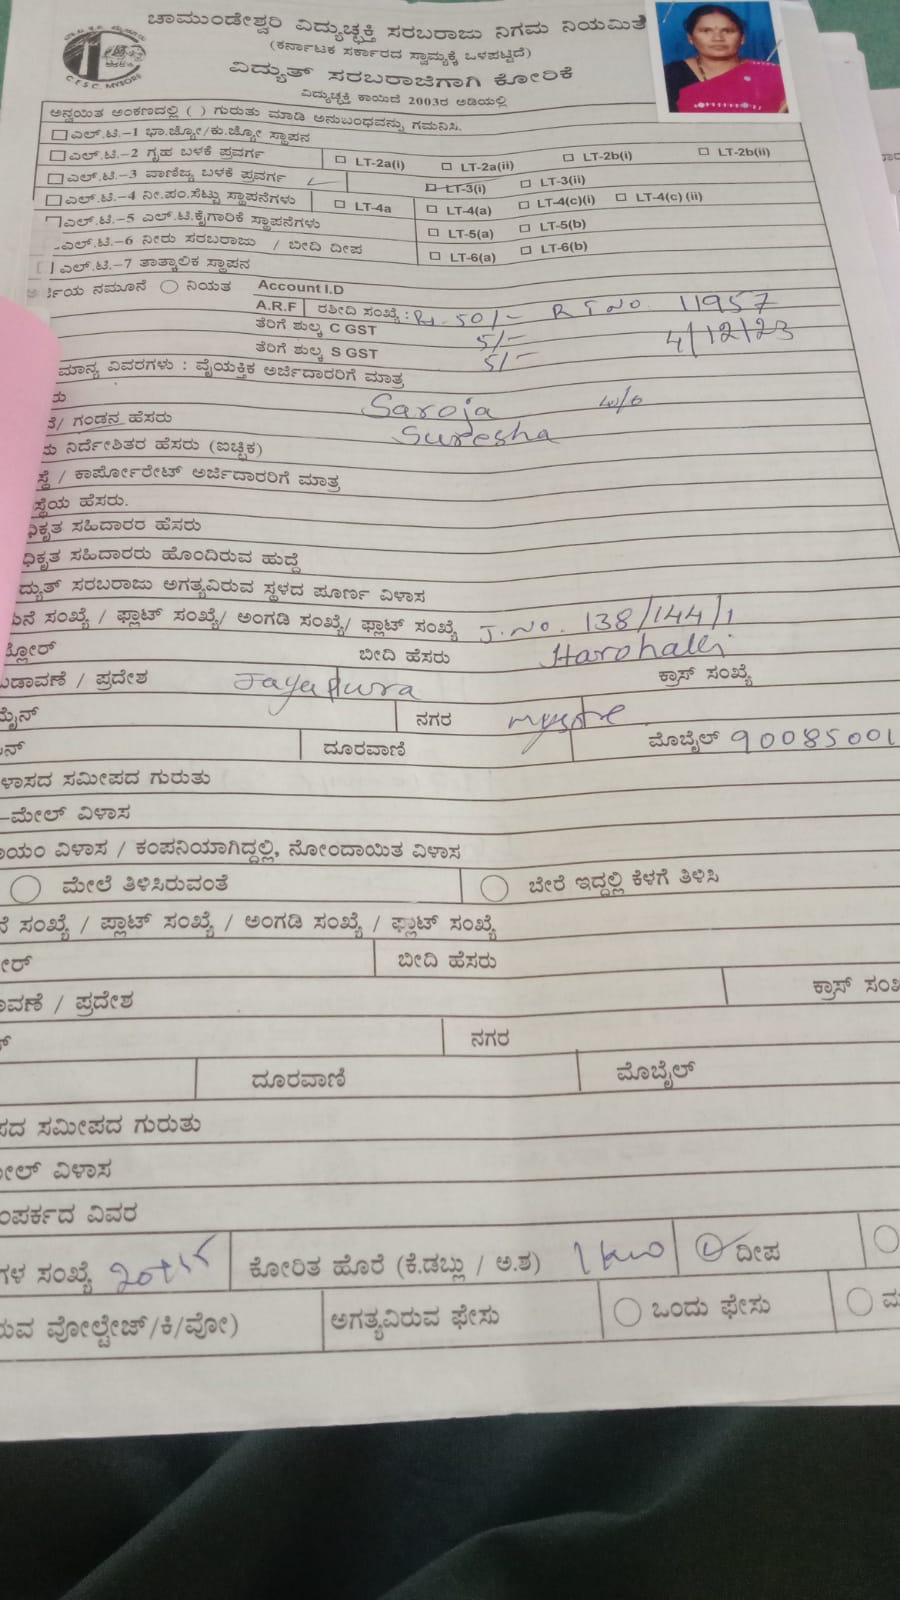 ಚಾಮುಂಡೇಶ್ವರಿ ವಿದ್ಯುಚ್ಛಕ್ತಿ ಸರಬರಾಜು ನಿಗಮ ನಿಯಮಿತ
(ಕರ್ನಾಟಕ ಸರ್ಕಾರದ ಸ್ವಾಮ್ಯಕ್ಕೆ ಒಳಪಟ್ಟಿದೆ)
C.E.S.C. MYSORE
ವಿದ್ಯುತ್ ಸರಬರಾಜಿಗಾಗಿ ಕೋರಿಕೆ
ವಿದ್ಯುಚ್ಛಕ್ತಿ ಕಾಯಿದೆ 2003ರ ಅಡಿಯಲ್ಲಿ
ಅನ್ವಯಿತ ಅಂಕಣದಲ್ಲಿ ( ) ಗುರುತು ಮಾಡಿ ಅನುಬಂಧವನ್ನು ಗಮನಿಸಿ.
ಎಲ್.ಟಿ.-1 ಭಾ.ಜ್ಯೋ/ಕು.ಜ್ಯೋ ಸ್ಥಾಪನ
ಎಲ್.ಟಿ.-2 ಗೃಹ ಬಳಕೆ ಪ್ರವರ್ಗ LT-2a(i) LT-2a(ii) LT-2b(i) LT-2b(ii)
ಎಲ್.ಟಿ.-3 ವಾಣಿಜ್ಯ ಬಳಕೆ ಪ್ರವರ್ಗ LT-3(i) LT-3(ii)
ಎಲ್.ಟಿ.-4 ನೀ.ಪಂ.ಸೆಟ್ಟು ಸ್ಥಾಪನೆಗಳು LT-4a LT-4(a) LT-4(c)(i) LT-4(c)(ii)
ಎಲ್.ಟಿ.-5 ಎಲ್.ಟಿ.ಕೈಗಾರಿಕೆ ಸ್ಥಾಪನೆಗಳು LT-5(a) LT-5(b)
ಎಲ್.ಟಿ.-6 ನೀರು ಸರಬರಾಜು / ಬೀದಿ ದೀಪ LT-6(a) LT-6(b)
ಎಲ್.ಟಿ.-7 ತಾತ್ಕಾಲಿಕ ಸ್ಥಾಪನ
ರ್ಜಿಯ ನಮೂನೆ ನಿಯತ Account I.D
A.R.F ರಶೀದಿ ಸಂಖ್ಯೆ : Rs. 50/- R T No. 11957
ತೆರಿಗೆ ಶುಲ್ಕ C GST 5/- 4/12/23
ತೆರಿಗೆ ಶುಲ್ಕ S GST 5/-
ಮಾನ್ಯ ವಿವರಗಳು : ವೈಯಕ್ತಿಕ ಅರ್ಜಿದಾರರಿಗೆ ಮಾತ್ರ
ರು Saroja w/o
/ ಗಂಡನ ಹೆಸರು Suresha
ನಿರ್ದೇಶಿತರ ಹೆಸರು (ಐಚ್ಛಿಕ)
ಸ್ಥೆ / ಕಾರ್ಪೋರೇಟ್ ಅರ್ಜಿದಾರರಿಗೆ ಮಾತ್ರ
ಸ್ಥೆಯ ಹೆಸರು.
ಧಿಕೃತ ಸಹಿದಾರರ ಹೆಸರು
ಧಿಕೃತ ಸಹಿದಾರರು ಹೊಂದಿರುವ ಹುದ್ದೆ
ದ್ಯುತ್ ಸರಬರಾಜು ಅಗತ್ಯವಿರುವ ಸ್ಥಳದ ಪೂರ್ಣ ವಿಳಾಸ
ನೆ ಸಂಖ್ಯೆ / ಪ್ಲಾಟ್ ಸಂಖ್ಯೆ/ ಅಂಗಡಿ ಸಂಖ್ಯೆ/ ಫ್ಲಾಟ್ ಸಂಖ್ಯೆ J. No. 138/144/1
ಫ್ಲೋರ್ ಬೀದಿ ಹೆಸರು Harohalli
ಡಾವಣೆ / ಪ್ರದೇಶ Jayapura ಕ್ರಾಸ್ ಸಂಖ್ಯೆ
ಮೈನ್ ನಗರ mysore
ನ್ ದೂರವಾಣಿ ಮೊಬೈಲ್ 90085001
ಳಾಸದ ಸಮೀಪದ ಗುರುತು
-ಮೇಲ್ ವಿಳಾಸ
ಾಯಂ ವಿಳಾಸ / ಕಂಪನಿಯಾಗಿದ್ದಲ್ಲಿ, ನೋಂದಾಯಿತ ವಿಳಾಸ
ಮೇಲೆ ತಿಳಿಸಿರುವಂತೆ ಬೇರೆ ಇದ್ದಲ್ಲಿ ಕೆಳಗೆ ತಿಳಿಸಿ
ನೆ ಸಂಖ್ಯೆ / ಪ್ಲಾಟ್ ಸಂಖ್ಯೆ / ಅಂಗಡಿ ಸಂಖ್ಯೆ / ಫ್ಲಾಟ್ ಸಂಖ್ಯೆ
ೋರ್ ಬೀದಿ ಹೆಸರು
ಾವಣೆ / ಪ್ರದೇಶ ಕ್ರಾಸ್ ಸಂಖ
ನಗರ
ದೂರವಾಣಿ ಮೊಬೈಲ್
ಸದ ಸಮೀಪದ ಗುರುತು
ೇಲ್ ವಿಳಾಸ
ಂಪರ್ಕದ ವಿವರ
ಗಳ ಸಂಖ್ಯೆ ಕೋರಿತ ಹೊರೆ (ಕೆ.ಡಬ್ಲ್ಯು / ಅ.ಶ) 1 kw ದೀಪ
ರುವ ವೋಲ್ಟೇಜ್/ಕಿ/ವೋ) ಅಗತ್ಯವಿರುವ ಫೇಸು ಒಂದು ಫೇಸು